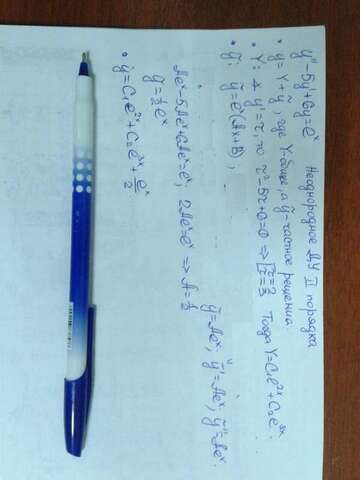 Неоднородное ДУ II порядка
y'' - 5y' + 6y = eˣ
• y = Y + ỹ, где Y - общее, а ỹ - частное решения.
• Y: y' = z, то z² - 5z + 6 = 0 => [z=2 z=3 Тогда Y = C₁e²ˣ + C₂e³ˣ.
• ỹ: ỹ = eˣ(Ax+B),
ỹ = Aeˣ; ỹ' = Aeˣ; ỹ'' = Aeˣ.
Aeˣ - 5Aeˣ + 6Aeˣ = eˣ; 2Aeˣ = eˣ => A = ½
ỹ = ½eˣ
• y = C₁e²ˣ + C₂e³ˣ + eˣ/2